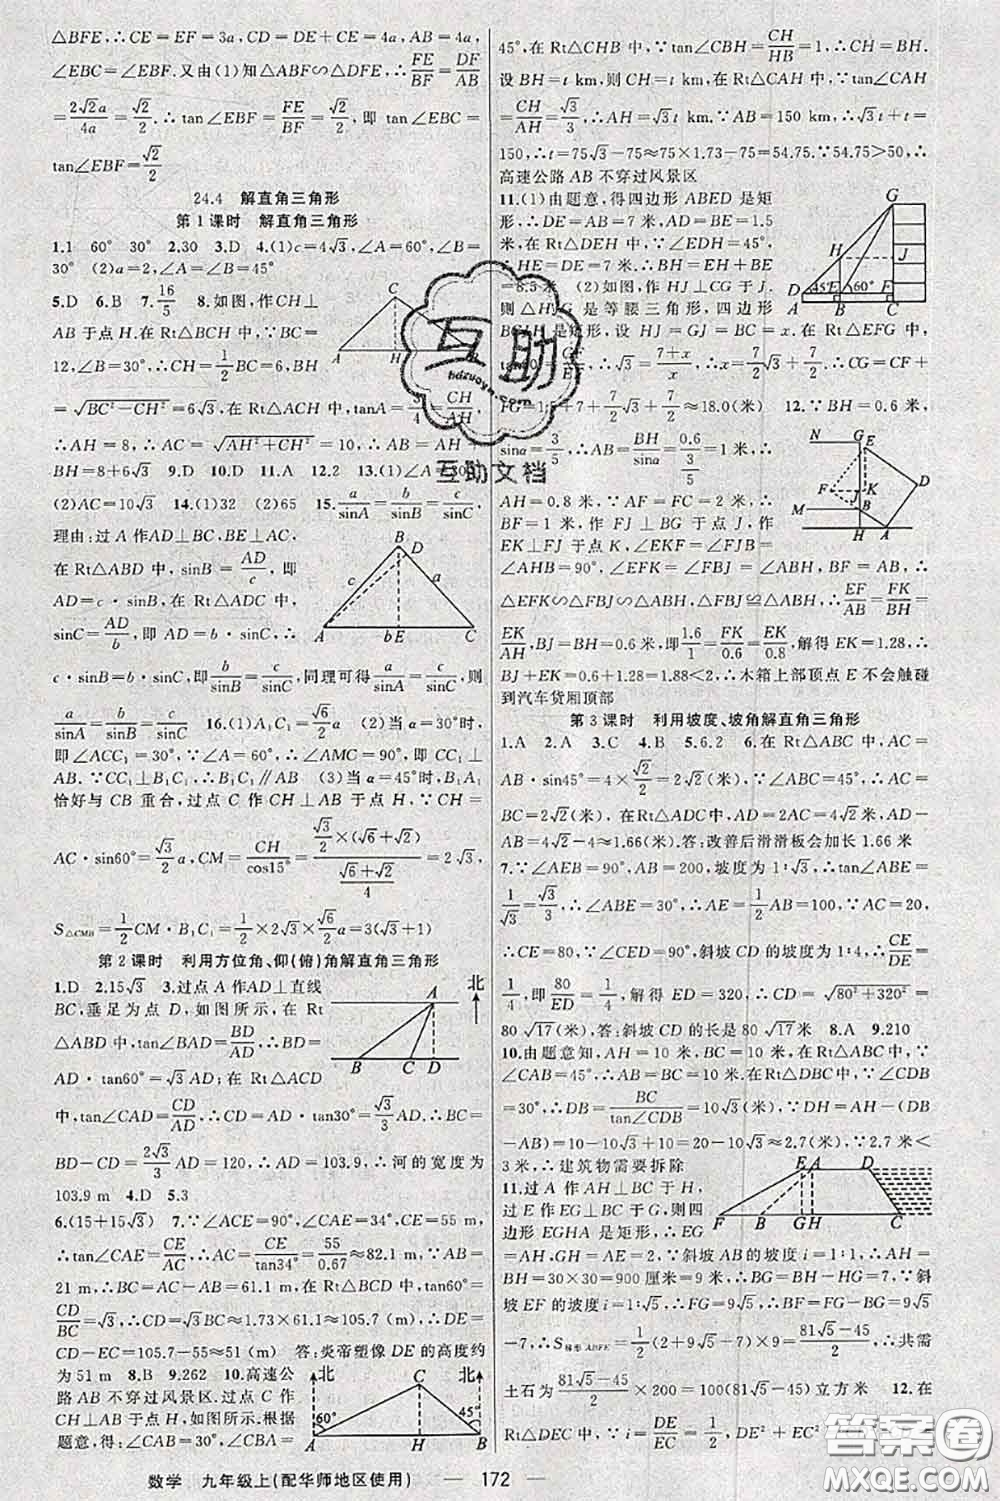 △BFE,∴CE=EF=3a,CD=DE+CE=4a,AB=4a,
∠EBC=∠EBF.又由(1)知△ABF∽△DFE,∴FE/BF=DF/AB
=2√2a/4a=√2/2.∴tan∠EBF=FE/BF=√2/2,即 tan∠EBC=
tan∠EBF=√2/2
24.4 解直角三角形
第1课时 解直角三角形
1.1 60° 30° 2.30 3.D 4.(1)c=4√3,∠A=60°,∠B=
30° (2)a=2,∠A=∠B=45°
5.D 6.B 7.16/5 8.如图,作CH⊥
AB于点H.在Rt△BCH中,∵BC=
12,∠B=30°,∴CH=1/2BC=6,BH
=√(BC²-CH²)=6√3.在Rt△ACH中,tanA=3/4=CH/AH,
∴AH=8,∴AC=√(AH²+CH²)=10,∴AB=AH+
BH=8+6√3 9.D 10.D 11.A 12.2 13.(1)∠A=30°
(2)AC=10√3 14.(1)32 (2)65 15.a/sinA=b/sinB
理由:过A作AD⊥BC,BE⊥AC,
在Rt△ABD中,sinB=AD/c,即
AD=c·sinB,在Rt△ADC中,
sinC=AD/b,即AD=b·sinC,∴
c·sinB=b·sinC,即b/sinB=c/sinC,同理可得a/sinA=c/sinC,则
a/sinA=b/sinB 16.(1)A₁C₁=√6/2a (2)当α=30°时,
即∠ACC₁=30°,∵∠A=60°,∴∠AMC=90°,即CC₁⊥
AB.∵CC₁⊥B₁C₁,∴B₁C₁∥AB (3)当α=45°时,B₁A₁
恰好与CB重合,过点C作CH⊥AB于点H,∵CH=
AC·sin60°=√3/2a,CM=CH/cos15°=(√3/2×(√6+√2))/((√6+√2)/4)=2√3,
S△CMB₁=1/2CM·B₁C₁=1/2×2√3×√6/2a=3(√3+1)
第2课时 利用方位角、仰(俯)角解直角三角形
1.D 2.15√3 3.过点A作AD⊥直线
BC,垂足为点D,如图所示,在Rt
△ABD中,tan∠BAD=BD/AD,∴BD=
AD·tan60°=√3AD;在Rt△ACD
中,tan∠CAD=CD/AD,∴CD=AD·tan30°=√3/3AD.∴BC=
BD-CD=2√3/3AD=120,∴AD=103.9,∴河的宽度为
103.9 m 4.D 5.3
6.(15+15√3) 7.∵∠ACE=90°,∠CAE=34°,CE=55 m,
∴tan∠CAE=CE/AC,∴AC=CE/tan34°=55/0.67≈82.1 m,∵AB=
21 m,∴BC=AC-AB=61.1 m,在Rt△BCD中,tan60°=
CD/BC=√3,∴CD=√3BC≈1.73×61.1≈105.7 (m),∴DE=
CD-EC=105.7-55≈51 (m) 答:炎帝塑像DE的高度约
为51 m 8.B 9.262 10.高速公
路AB不穿过风景区.过点C作
CH⊥AB于点H,如图所示.根据
题意,得:∠CAB=30°,∠CBA=
45°,在Rt△CHB中,∵tan∠CBH=CH/HB=1,∴CH=BH.
设BH=t km,则CH=t km,在Rt△CAH中,∵tan∠CAH
=CH/AH=√3/3,∴AH=√3t km.∵AB=150 km,∴√3t+t=
150,∴t=75√3-75≈75×1.73-75=54.75.∵54.75>50,∴
高速公路AB不穿过风景区
11.(1)由题意,得四边形ABED是矩
形,∴DE=AB=7米,AD=BE=1.5
米,在Rt△DEH中,∵∠EDH=45°,
∴HE=DE=7米.∴BH=EH+BE=
8.5米 (2)如图,作HJ⊥CG于J.
则△HJG是等腰三角形,四边形
BCJH是矩形,设HJ=GJ=BC=x.在Rt△EFG中,
tan60°=GF/EF=(7+x)/x=√3,∴x=7/2√3+7/2,∴CG=CF+
FG=1.5+7+7/2√3+7/2≈18.0(米) 12.∵BH=0.6米,
sinα=3/5,∴AB=BH/sinα=0.6/(3/5)=1米,∴
AH=0.8米,∵AF=FC=2米,∴
BF=1米,作FJ⊥BG于点J,作
EK⊥FJ于点K,∵∠FJB=
∠AHB=90°,∠EFK=∠FBJ=∠ABH,BF=AB,∴
△EFK∽△FBJ≌△ABH,∴EF/AB=FK/BH=
EK/AH,BJ=BH=0.6米,即1.6/1=FK/0.6=EK/0.8,解得EK=1.28,∴
BJ+EK=0.6+1.28=1.88<2,∴木箱上部顶点E不会触碰
到汽车货厢顶部
第3课时 利用坡度、坡角解直角三角形
1.A 2.A 3.C 4.B 5.6.2 6.在Rt△ABC中,AC=
AB·sin45°=4×√2/2=2√2(米),∵∠ABC=45°,∴AC=
BC=2√2(米),在Rt△ADC中,AD=2AC=4√2(米),AD-
AB=4√2-4≈1.66(米).答:改善后滑滑板会加长1.66米
7.∵∠AEB=90°,AB=200,坡度为1:√3,∴tan∠ABE=
1/√3=√3/3,∴∠ABE=30°,∴AE=1/2AB=100.∵AC=20,
∴CE=80,∵∠CED=90°,斜坡CD的坡度为1:4,∴CE/DE=
1/4,即80/ED=1/4,解得ED=320,∴CD=√(80²+320²)=
80√17(米),答:斜坡CD的长是80√17米 8.A 9.210
10.由题意知,AH=10米,BC=10米,在Rt△ABC中,∵
∠CAB=45°,∴AB=BC=10米.在Rt△DBC中,∵∠CDB
=30°,∴DB=BC/tan∠CDB=10√3(米),∵DH=AH-(DB
-AB)=10-10√3+10=20-10√3≈2.7(米),∵2.7米<
3米,∴建筑物需要拆除
11.过A作AH⊥BC于H,
过E作EG⊥BC于G,则四
边形EGHA是矩形,∴EG
=AH,GH=AE=2,∵斜坡AB的坡度i=1:1,∴AH=
BH=30×30=900厘米=9米,∴BG=BH-HG=7,∵斜
坡EF的坡度i=1:√5,∴FG=9√5,∴BF=FG-BG=9√5
-7,∴S梯形ABFE=1/2(2+9√5-7)×9=(81√5-45)/2,∴共需
土石为(81√5-45)/2×200=100(81√5-45)立方米 12.在
Rt△DEC中,∵i=DE/EC=1/2,DE²+EC²
数学 九年级上(配华师地区使用) — 172 —
互助
hdzuoye.com
互助文档
答案圈
MXQE.COM